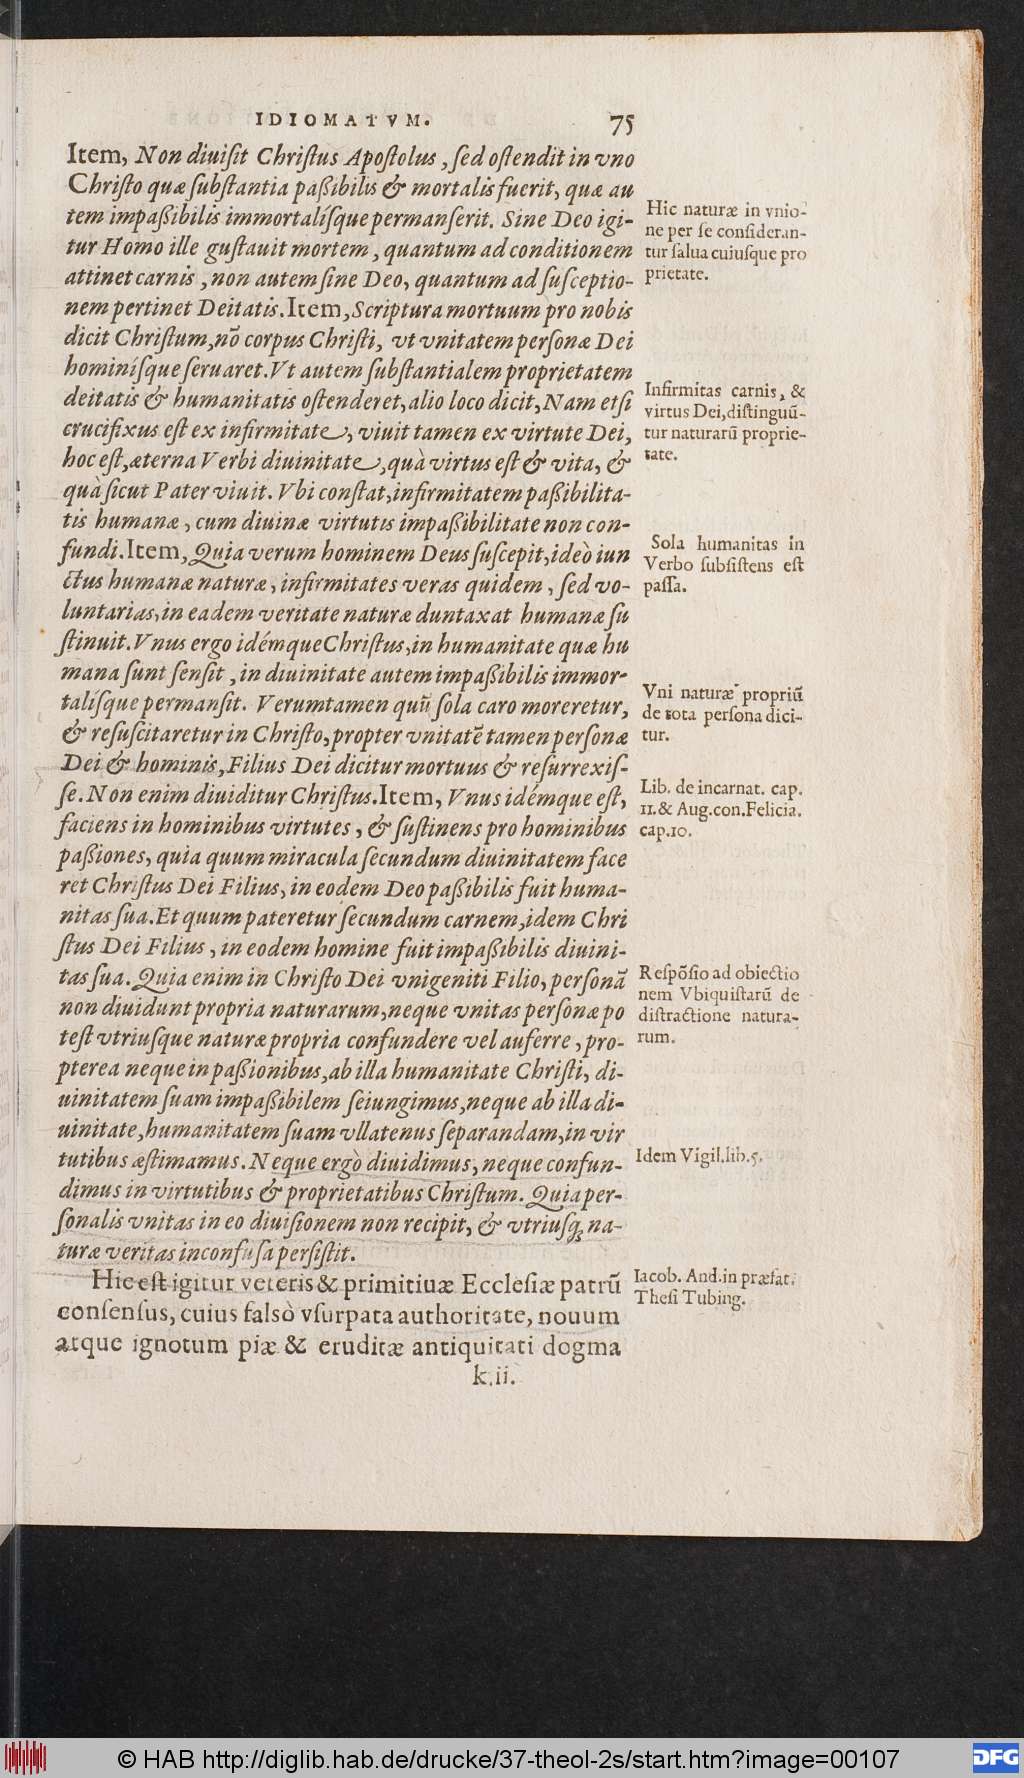 IDIOMATVM. 75
Item, Non diuiſit Chriſtus Apoſtolus, ſed oſtendit in vno
Chriſto quæ ſubſtantia paßibilis & mortalis fuerit, quæ au
tem impaßibilis immortalíſque permanſerit. Sine Deo igi-
tur Homo ille guſtauit mortem, quantum ad conditionem
attinet carnis, non autem ſine Deo, quantum ad ſuſceptio-
nem pertinet Deitatis. Item, Scriptura mortuum pro nobis
dicit Chriſtum, nõ corpus Chriſti, vt vnitatem perſonæ Dei
hominíſque ſeruaret. Vt autem ſubſtantialem proprietatem
deitatis & humanitatis oſtenderet, alio loco dicit, Nam etſi
crucifixus eſt ex infirmitate, viuit tamen ex virtute Dei,
hoc eſt, æterna Verbi diuinitate, quà virtus eſt & vita, &
quà ſicut Pater viuit. Vbi conſtat, infirmitatem paßibilita-
tis humanæ, cum diuinæ virtutis impaßibilitate non con-
fundi. Item, Quia verum hominem Deus ſuſcepit, ideò iun
ctus humanæ naturæ, infirmitates veras quidem, ſed vo-
luntarias, in eadem veritate naturæ duntaxat humanæ ſu
ſtinuit. Vnus ergo idémque Chriſtus, in humanitate quæ hu
mana ſunt ſenſit, in diuinitate autem impaßibilis immor-
talíſque permanſit. Verumtamen quũ ſola caro moreretur,
& reſuſcitaretur in Chriſto, propter vnitatẽ tamen perſonæ
Dei & hominis, Filius Dei dicitur mortuus & reſurrexiſ-
ſe. Non enim diuiditur Chriſtus. Item, Vnus idémque eſt,
faciens in hominibus virtutes, & ſuſtinens pro hominibus
paßiones, quia quum miracula ſecundum diuinitatem face
ret Chriſtus Dei Filius, in eodem Deo paßibilis fuit huma-
nitas ſua. Et quum pateretur ſecundum carnem, idem Chri
ſtus Dei Filius, in eodem homine fuit impaßibilis diuini-
tas ſua. Quia enim in Chriſto Dei vnigeniti Filio, perſonã
non diuidunt propria naturarum, neque vnitas perſonæ po
teſt vtriuſque naturæ propria confundere vel auferre, pro-
pterea neque in paßionibus, ab illa humanitate Chriſti, di-
uinitatem ſuam impaßibilem ſeiungimus, neque ab illa di-
uinitate, humanitatem ſuam vllatenus ſeparandam, in vir
tutibus æſtimamus. Neque ergò diuidimus, neque confun-
dimus in virtutibus & proprietatibus Chriſtum. Quia per-
ſonalis vnitas in eo diuiſionem non recipit, & vtriuſq; na-
turæ veritas inconfuſa perſiſtit.
Hic eſt igitur veteris & primitiuæ Eccleſiæ patrũ
conſenſus, cuius falsò vſurpata authoritate, nouum
atque ignotum piæ & eruditæ antiquitati dogma
k.ii.
Hic naturæ in vnio-
ne per ſe conſideran-
tur ſalua cuiuſque pro
prietate.
Infirmitas carnis, &
virtus Dei, diſtinguũ-
tur naturarũ proprie-
tate.
Sola humanitas in
Verbo ſubſiſtens eſt
paſſa.
Vni naturæ propriũ
de tota perſona dici-
tur.
Lib. de incarnat. cap.
11. & Aug. con. Felicia.
cap. 10.
Reſpõſio ad obiectio
nem Vbiquiſtarũ de
diſtractione natura-
rum.
Idem Vigil. lib. 5.
Iacob. And. in præfat.
Theſi Tubing.
© HAB http://diglib.hab.de/drucke/37-theol-2s/start.htm?image=00107
DFG